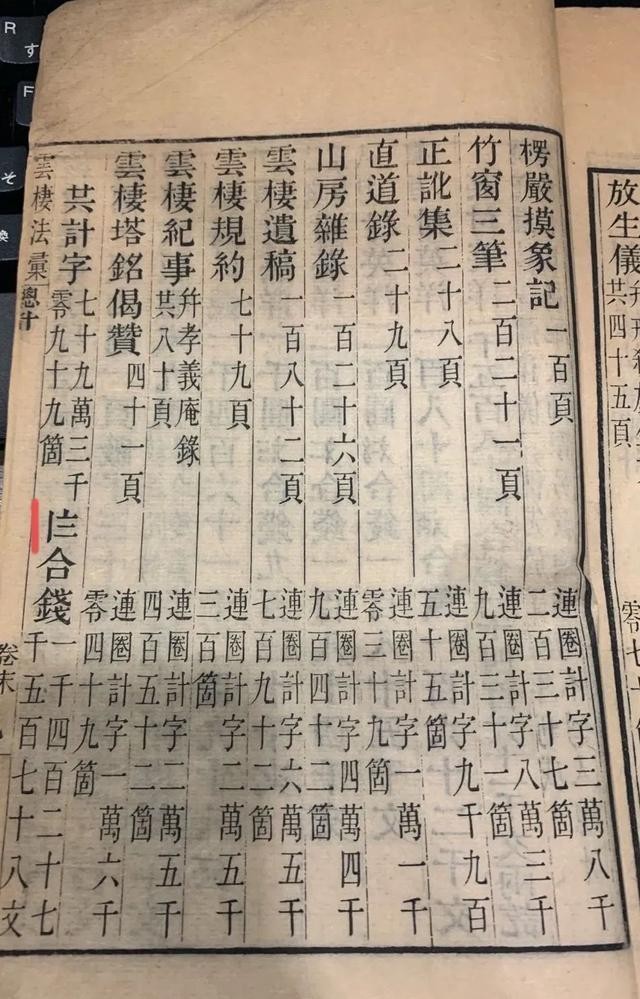 放生儀
共四十五頁
楞嚴摸象記 一百頁 連圈計字三萬八千二百三十七箇
竹窗三筆 二百二十一頁 連圈計字八萬三千九百三十一箇
正訛集 二十八頁 連圈計字九千九百五十五箇
直道錄 二十九頁 連圈計字一萬一千零三十九箇
山房雜錄 一百二十六頁 連圈計字四萬四千九百四十二箇
雲棲遺稿 一百八十二頁 連圈計字六萬五千七百九十二箇
雲棲規約 七十九頁 連圈計字二萬五千三百箇
雲棲紀事 幷孝義庵錄共八十頁 連圈計字二萬五千四百五十二箇
雲棲塔銘偈贊 四十一頁 連圈計字一萬六千零四十九箇
共計字 七十九萬三千零九十九箇 合錢 一千四百二十七千五百七十八文
雲棲法彙 總計 卷末
R
す
F
そ
換